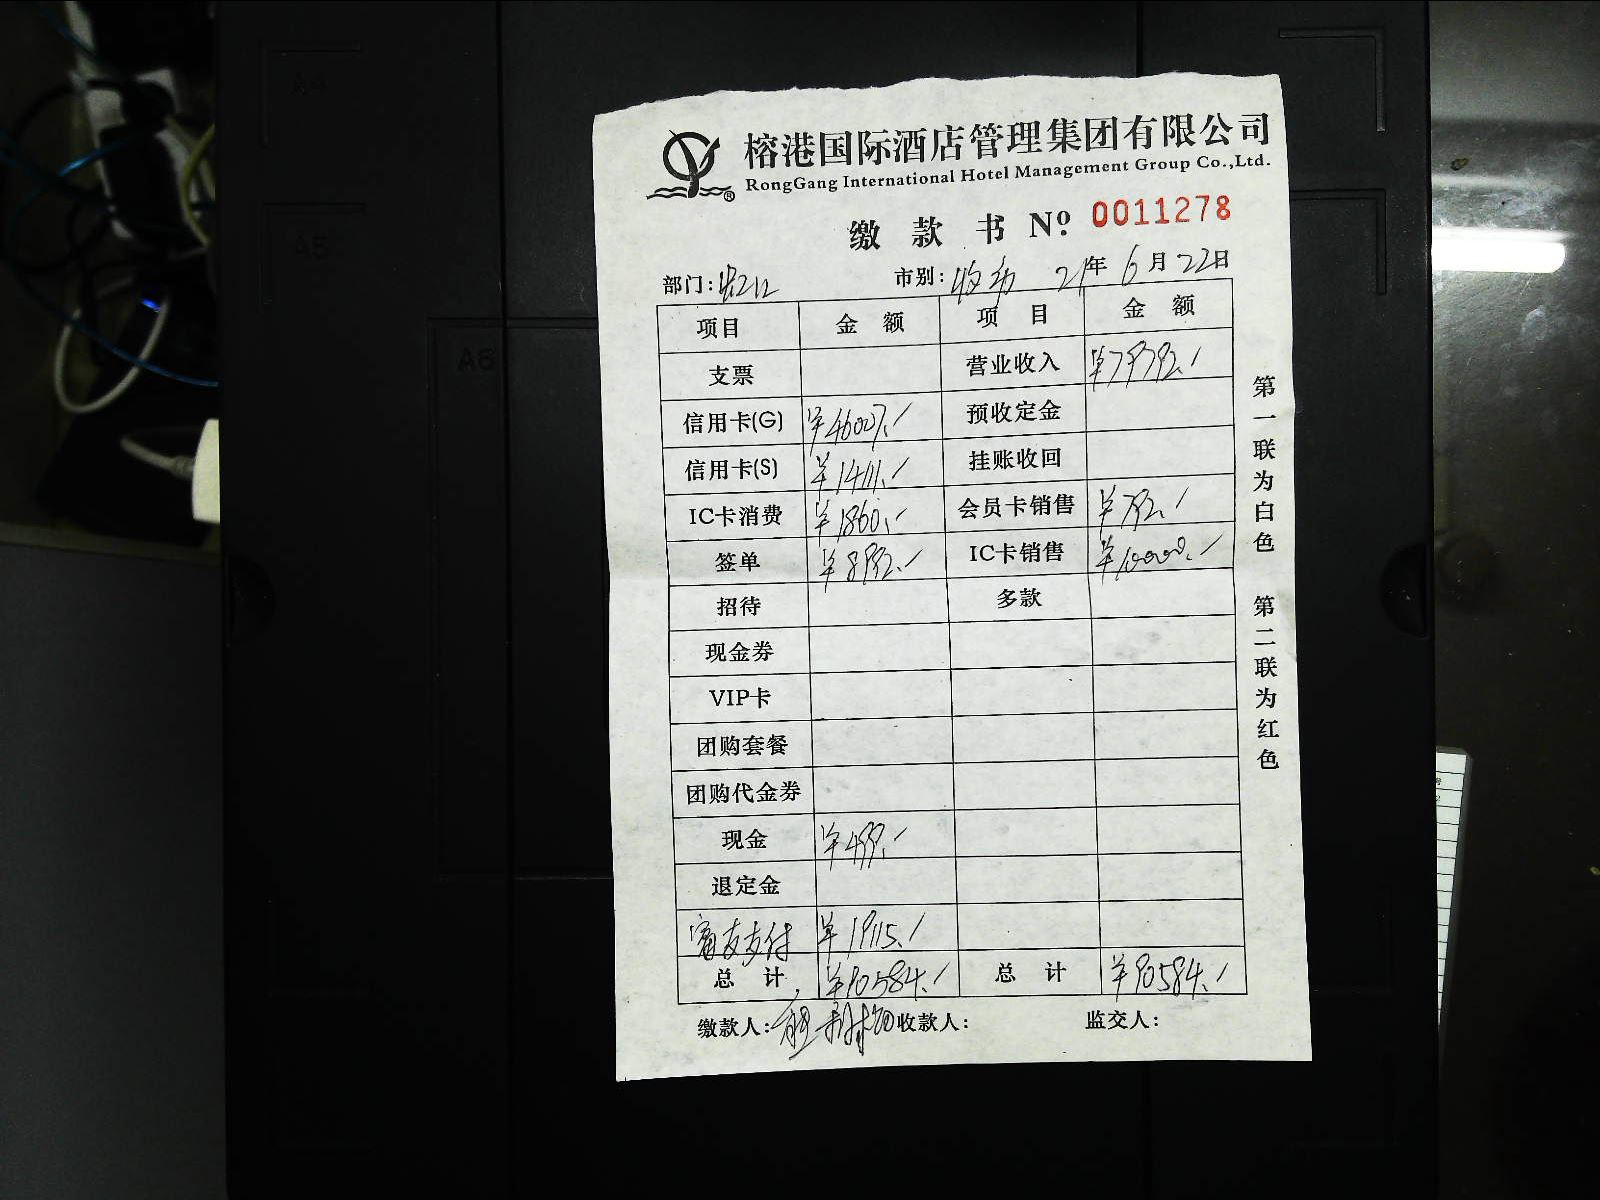 A4
A5
A6
榕港国际酒店管理集团有限公司
®
RongGang International Hotel Management Group Co.,Ltd.
缴 款 书 Nº 0011278
部门: 市别: 21年 6月 22日
项目 金 额 项 目 金 额
支票 营业收入 ¥79792./
信用卡(G) ¥46007./ 预收定金
信用卡(S) ¥14111./ 挂账收回
IC卡消费 ¥1860./ 会员卡销售 ¥792./
签单 ¥8992./ IC卡销售 ¥10000./
招待 多款
现金券
VIP卡
团购套餐
团购代金券
现金 ¥499./
退定金
支付 ¥19115./
总 计 ¥90584./ 总 计 ¥90584./
缴款人: 收款人: 监交人:
第一联为白色 第二联为红色